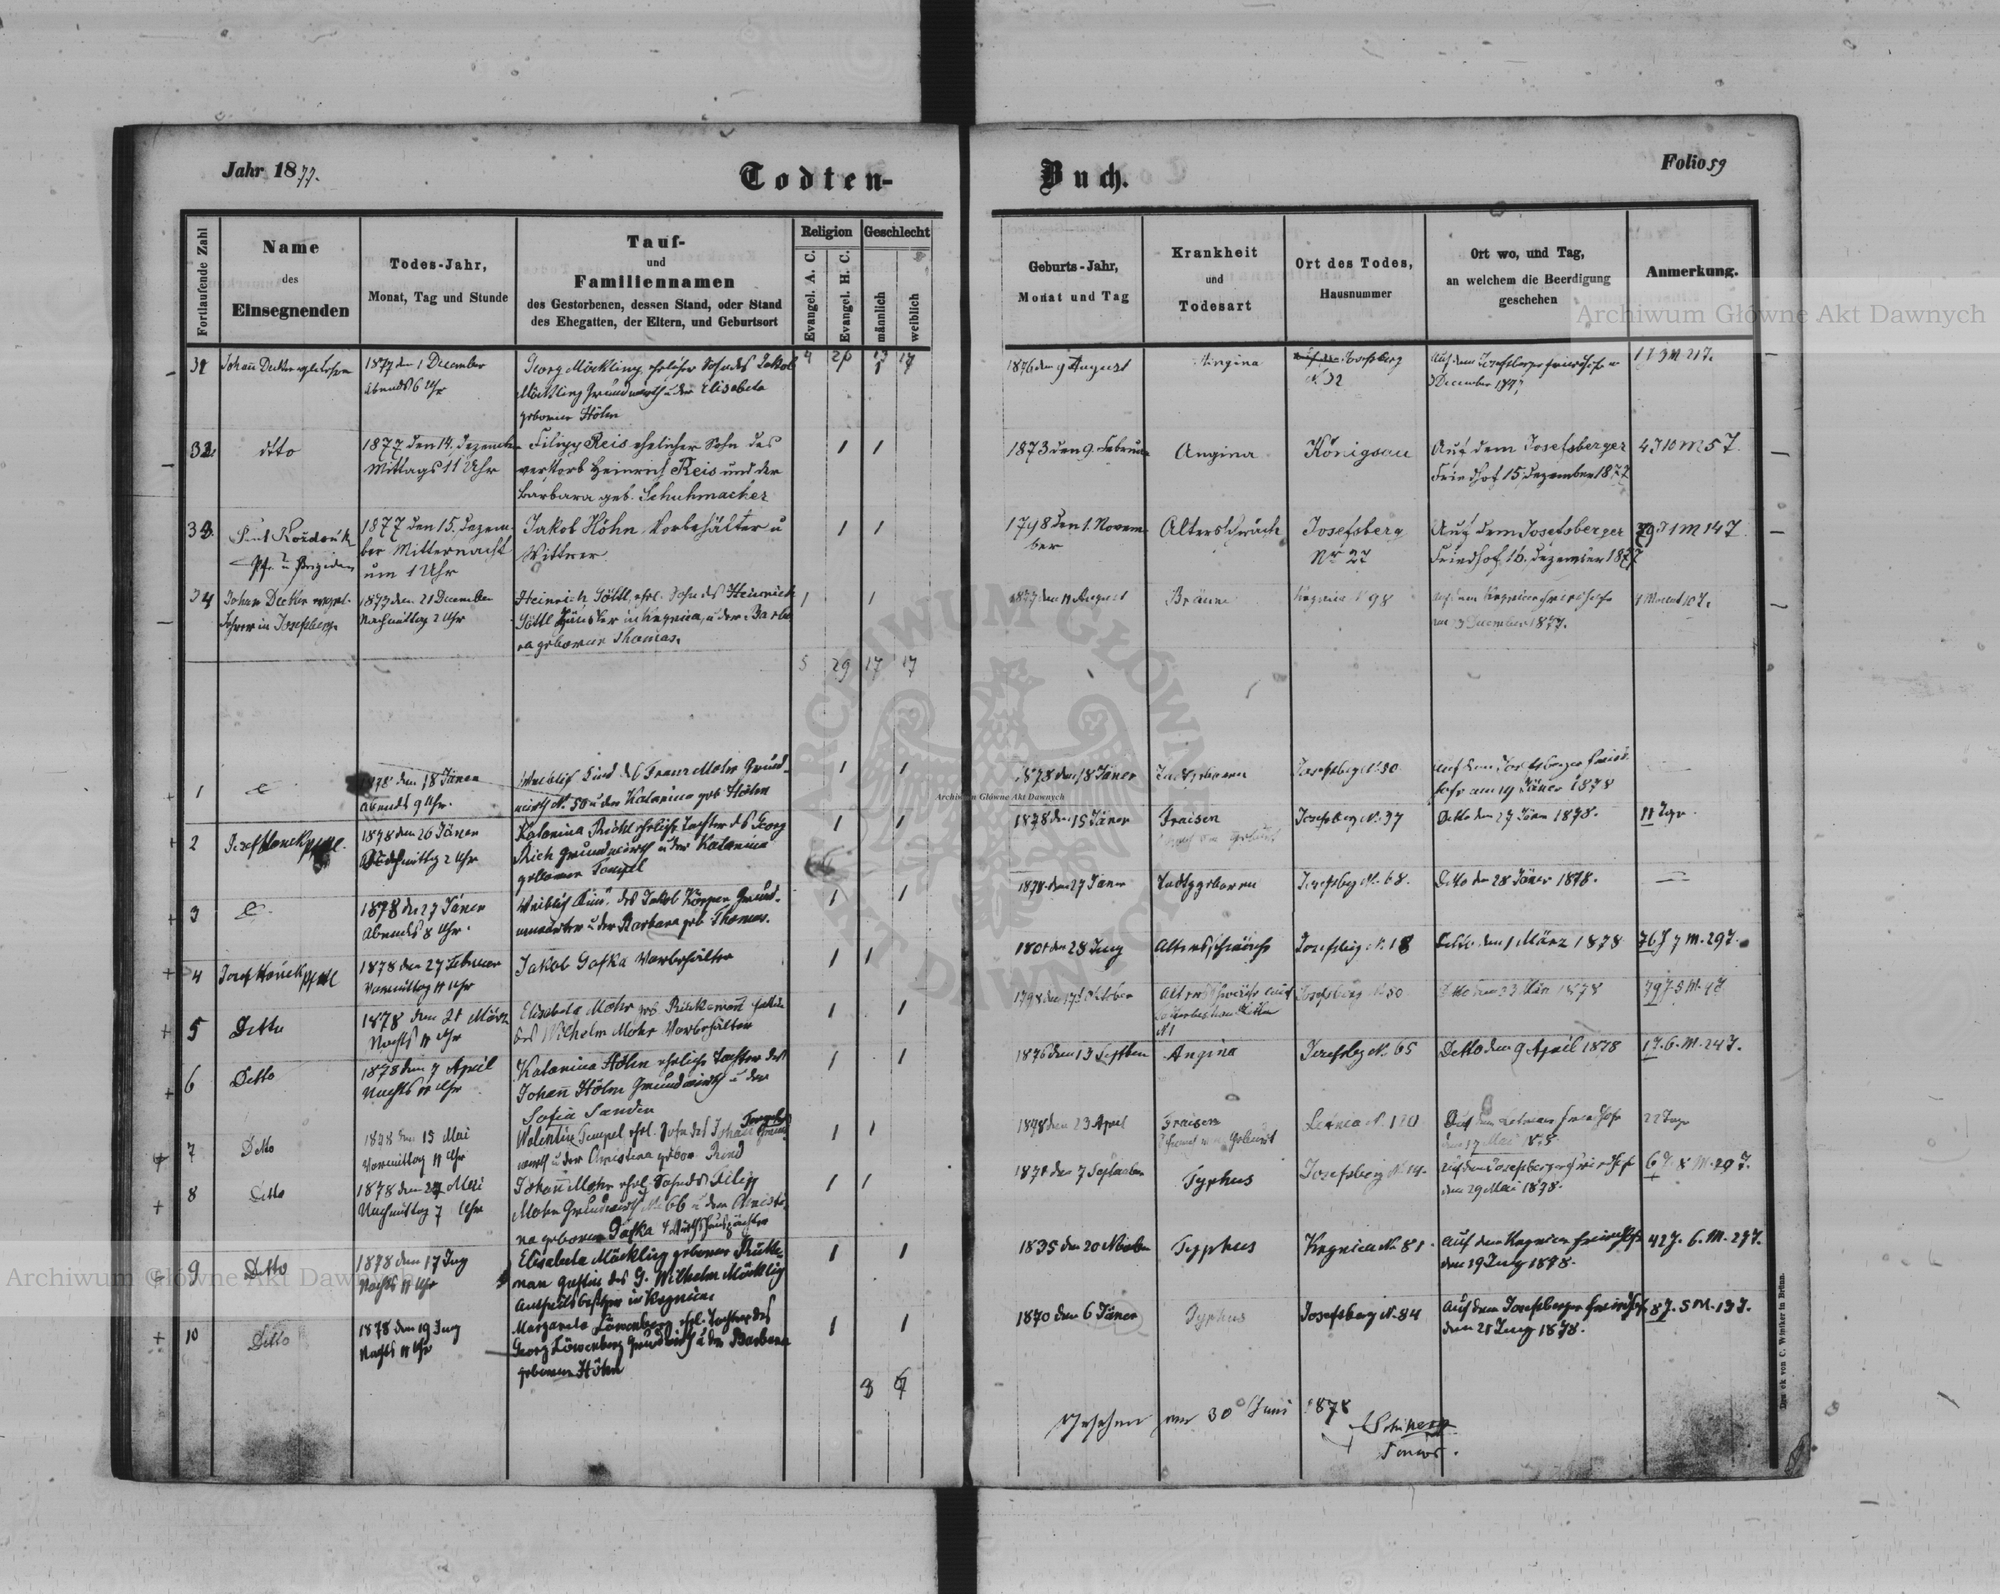 Jahr 1877.
Todten-
Buch.
Folio 59
Fortlaufende Zahl
Name
des
Einsegnenden
Todes-Jahr,
Monat, Tag und Stunde
Tauf-
und
Familiennamen
des Gestorbenen, dessen Stand, oder Stand
des Ehegatten, der Eltern, und Geburtsort
Religion
Geschlecht
Evangel. A. C.
Evangel. H. C.
männlich
weiblich
Geburts-Jahr,
Monat und Tag
Krankheit
und
Todesart
Ort des Todes,
Hausnummer
Ort wo, und Tag,
an welchem die Beerdigung
geschehen
Anmerkung.
31
1877 den 1 December
Abends 6 Uhr
Georg Möckling, ehelicher Sohn des Jakob
Möckling Grundwirth u der Elisabeta
geborene Höhn
1876 den 9 August
Angina
Josefsberg
N 32
December 1877
32
dto
1877 den 14. Dezember
Mittags 11 Uhr
Filipp Reis ehelicher Sohn des
verstorb Heinrich Reis und der
Barbara geb. Schuhmacher
1 1
1873 den 9. Februar
Angina
Königsau
Auf dem Josefsberger
Friedhof 15. Dezember 1877
4 J 10 M 5 T.
33
1877 den 15. Dezem-
ber Mitternacht
um 1 Uhr
Jakob Höhn Vorbehälter u
Wittwer
1 1
1798 den 1. Novem
ber
Altersschwäche
Josefsberg
Nr 27
Auf dem Josefsberger
Friedhof 16. Dezember 1877
79 J 1 M 14 T.
34
Johan Decker evgel.
Lehrer in Josefsberg
1877 den 21 December
Nachmittag 2 Uhr
Heinrich Göttl, ehl. Sohn des Heinrich
Göttl Häusler in Ugrnica, u der Barba
ra geborene Thomas.
1 1
1877 den 11 August
Bräune
Ugrnica N 98
December 1877.
4 Monat 10 T.
5 29 17 17
1
1878 den 18 Jäner
Abends 9 Uhr.
Weiblich Kind des Franz Mohr Grund-
wirth N. 50 u der Katarina geb Höhn
1 1
1878 den 18 Jäner
Todtgeboren
Josefsberg N. 50
auf dem Josefsberger Fried-
hofe am 19 Jäner 1878
2
1878 den 26 Jäner
Nachmittag 2 Uhr
Katarina Reich ehelich Tochter des Georg
Reich Grundwirth u der Katarina
geborene Tempel
1 1
1878 den 15 Jäner
Fraisen
Josefsberg N. 37
Detto den 27 Jäner 1878.
11 Tage.
3
1878 den 27 Jäner
Abends 8 Uhr.
Weiblich Kind des Jakob Körper Grund-
u der Barbara geb Thomas.
1 1
1878 den 27 Jäner
Todtgeboren
Josefsberg N. 68.
Detto den 28 Jäner 1878.
4
1878 den 27 Februar
Vormittag 11 Uhr
Jakob Gafka Vorbehälter
1 1
1801 den 28 July
Altersschwäche
Josefsberg N. 18
Detto den 1 März 1878
76 J 7 M. 29 T.
5
Detto
1878 den 21 März
Nachts 11 Uhr
Elisabeta Mohr geb. Rückemann Gattin
des Wilhelm Mohr Vorbehälter
1 1
1798 den 17 Oktober
Altersschwäche
N 1
Josefsberg N. 50
Detto den 23 März 1878
79 J. 5 M. 4 T
6
Detto
1878 den 7 April
Nachts 11 Uhr
Katarina Höhn eheliche Tochter des
Johann Höhn Grundwirth u der
Sofia Sander
1 1
1876 den 13 Septber
Angina
Josefsbg N. 65
Detto den 9 April 1878
1 J. 6. M. 24 T.
7
Detto
1878 den 15 Mai
Vormittag 11 Uhr
Walentin Tempel, ehl. Sohn des Johann Tempel Grund
wirth u der Christina gebor. Rind
1 1
1878 den 23 April
Fraisen
Letnia N. 110
den 17 Mai 1878
22 Tage
8
Detto
1878 den 27 Mai
Nachmittag 7 Uhr
Johann Mohr ehl. Sohn des Filip
Mohr Grundwirth N. 66 u der Christi
na geborene Gafka
1 1
1871 den 7 September
Typhus
Josefsberg N. 14.
Auf dem Josefsberger Friedhof
den 29 Mai 1878.
6 J. 8 M. 29 T.
9
Detto
1878 den 17 July
Nachts 11 Uhr
Elisabeta Möckling geborene Rücke-
man Gattin des G. Wilhelm Möckling
Antheilsbesitzer in Ugrnica
1 1
1835 den 20 November
Typhus
Ugrnica N. 81.
Auf dem Ugrnica Friedhofe
den 19 July 1878.
42 J. 6. M. 27 T.
10
Detto
1878 den 19 July
Nachts 11 Uhr
Margareta Löwenberg, ehl. Tochter des
Georg Löwenberg Grundwirth u der Barbara
geborene Höhn
1 1
1870 den 6 Jäner
Typhus
Josefsberg N. 84
Auf dem Josefsberger Friedhof
den 21 July 1878.
8 J. 5 M. 13 T.
Gesehen am 30 Juni 1878
Senior.
Druck von C. Winiker in Brünn.
Archiwum Główne Akt Dawnych
Archiwum Główne Akt Dawnych
Archiwum Główne Akt Dawnych
ARCHIWUM GŁÓWNE
AKT DAWNYCH